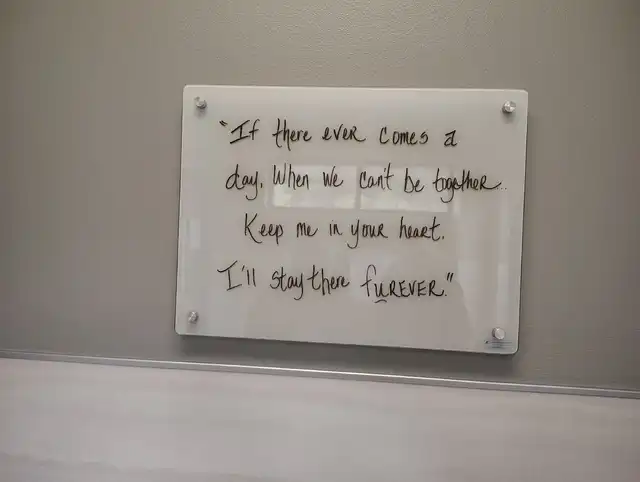 "If there ever comes a
day. When we can't be together..
Keep me in your heart.
I'll stay there fuREVER."